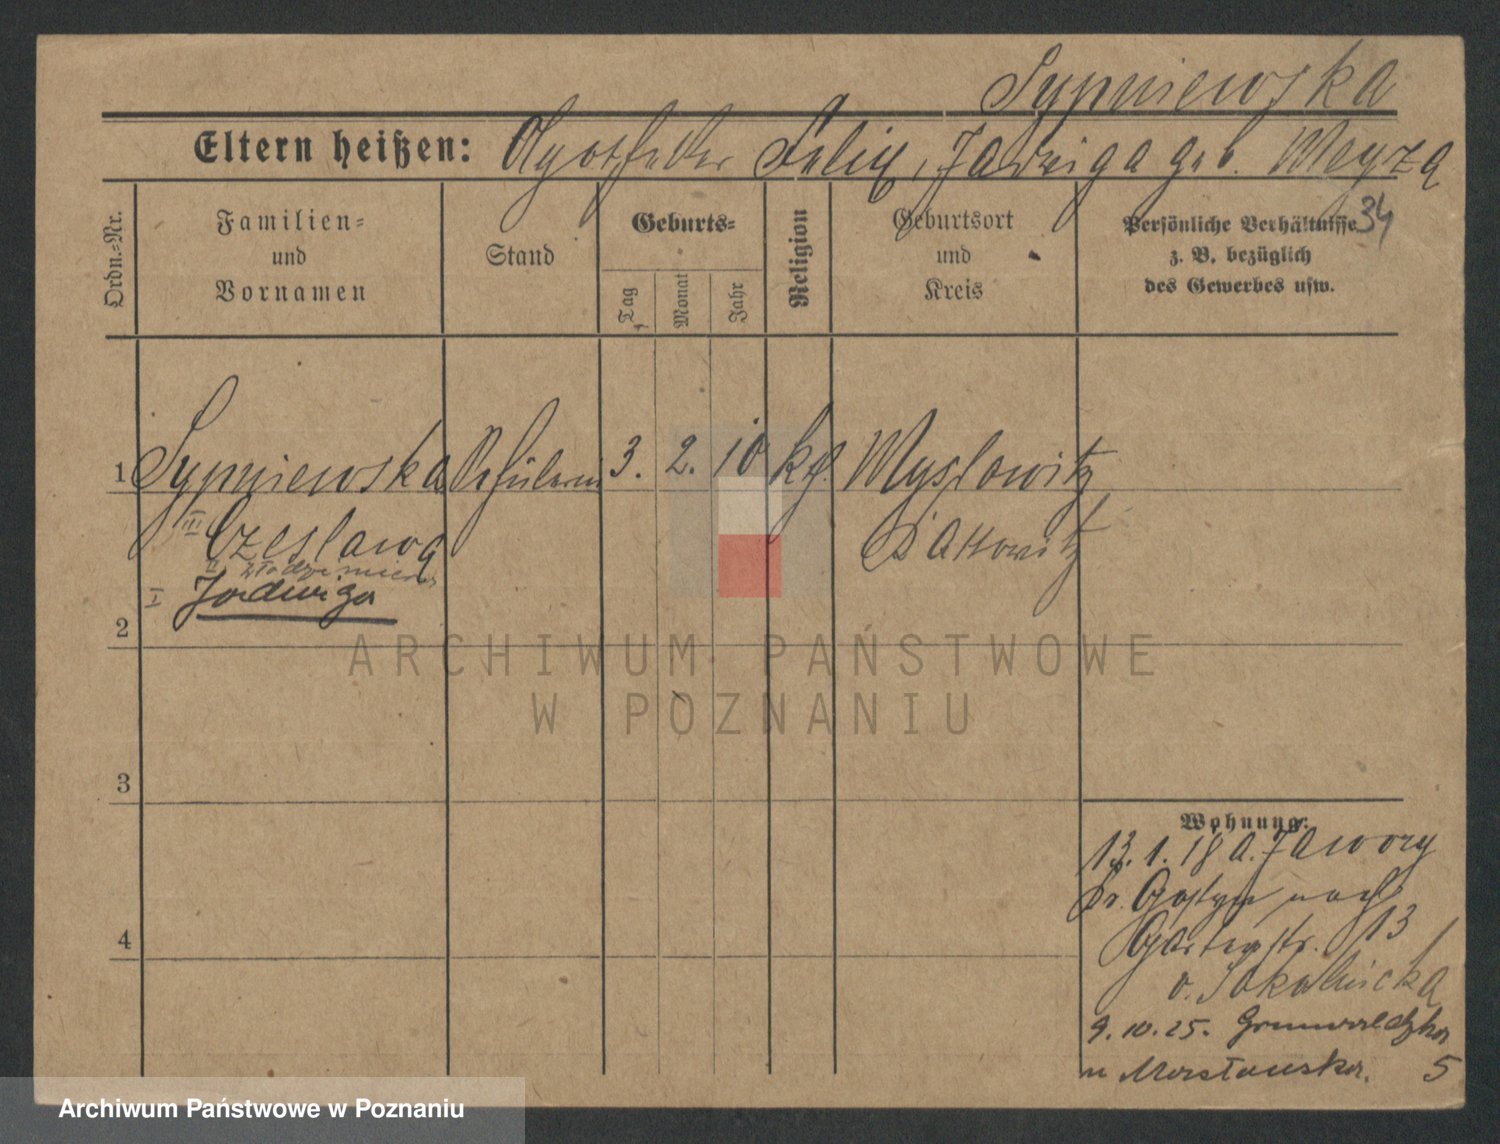 Sypniewska
Eltern heißen: Apotheker Felix, Jadwiga geb. Meyza
34
Ordn.-Nr.
Familien-
und
Vornamen
Stand
Geburts-
Tag
Monat
Jahr
Religion
Geburtsort
und
Kreis
Persönliche Verhältnisse
z. B. bezüglich
des Gewerbes usw.
1 Sypniewska Schülerin 3. 2. 10 kth. Myslowitz
III Czeslawa Kattowitz
II Włodzimiera
I Jadwiga
2
ARCHIWUM PAŃSTWOWE
W POZNANIU
3
Wohnung:
13. 1. 18 a. Jawory
Kr. Gostyn nach
4 Gartenstr. 13
b. Sokolnicka
9. 10. 25. Grunwaldzka
5
Archiwum Państwowe w Poznaniu